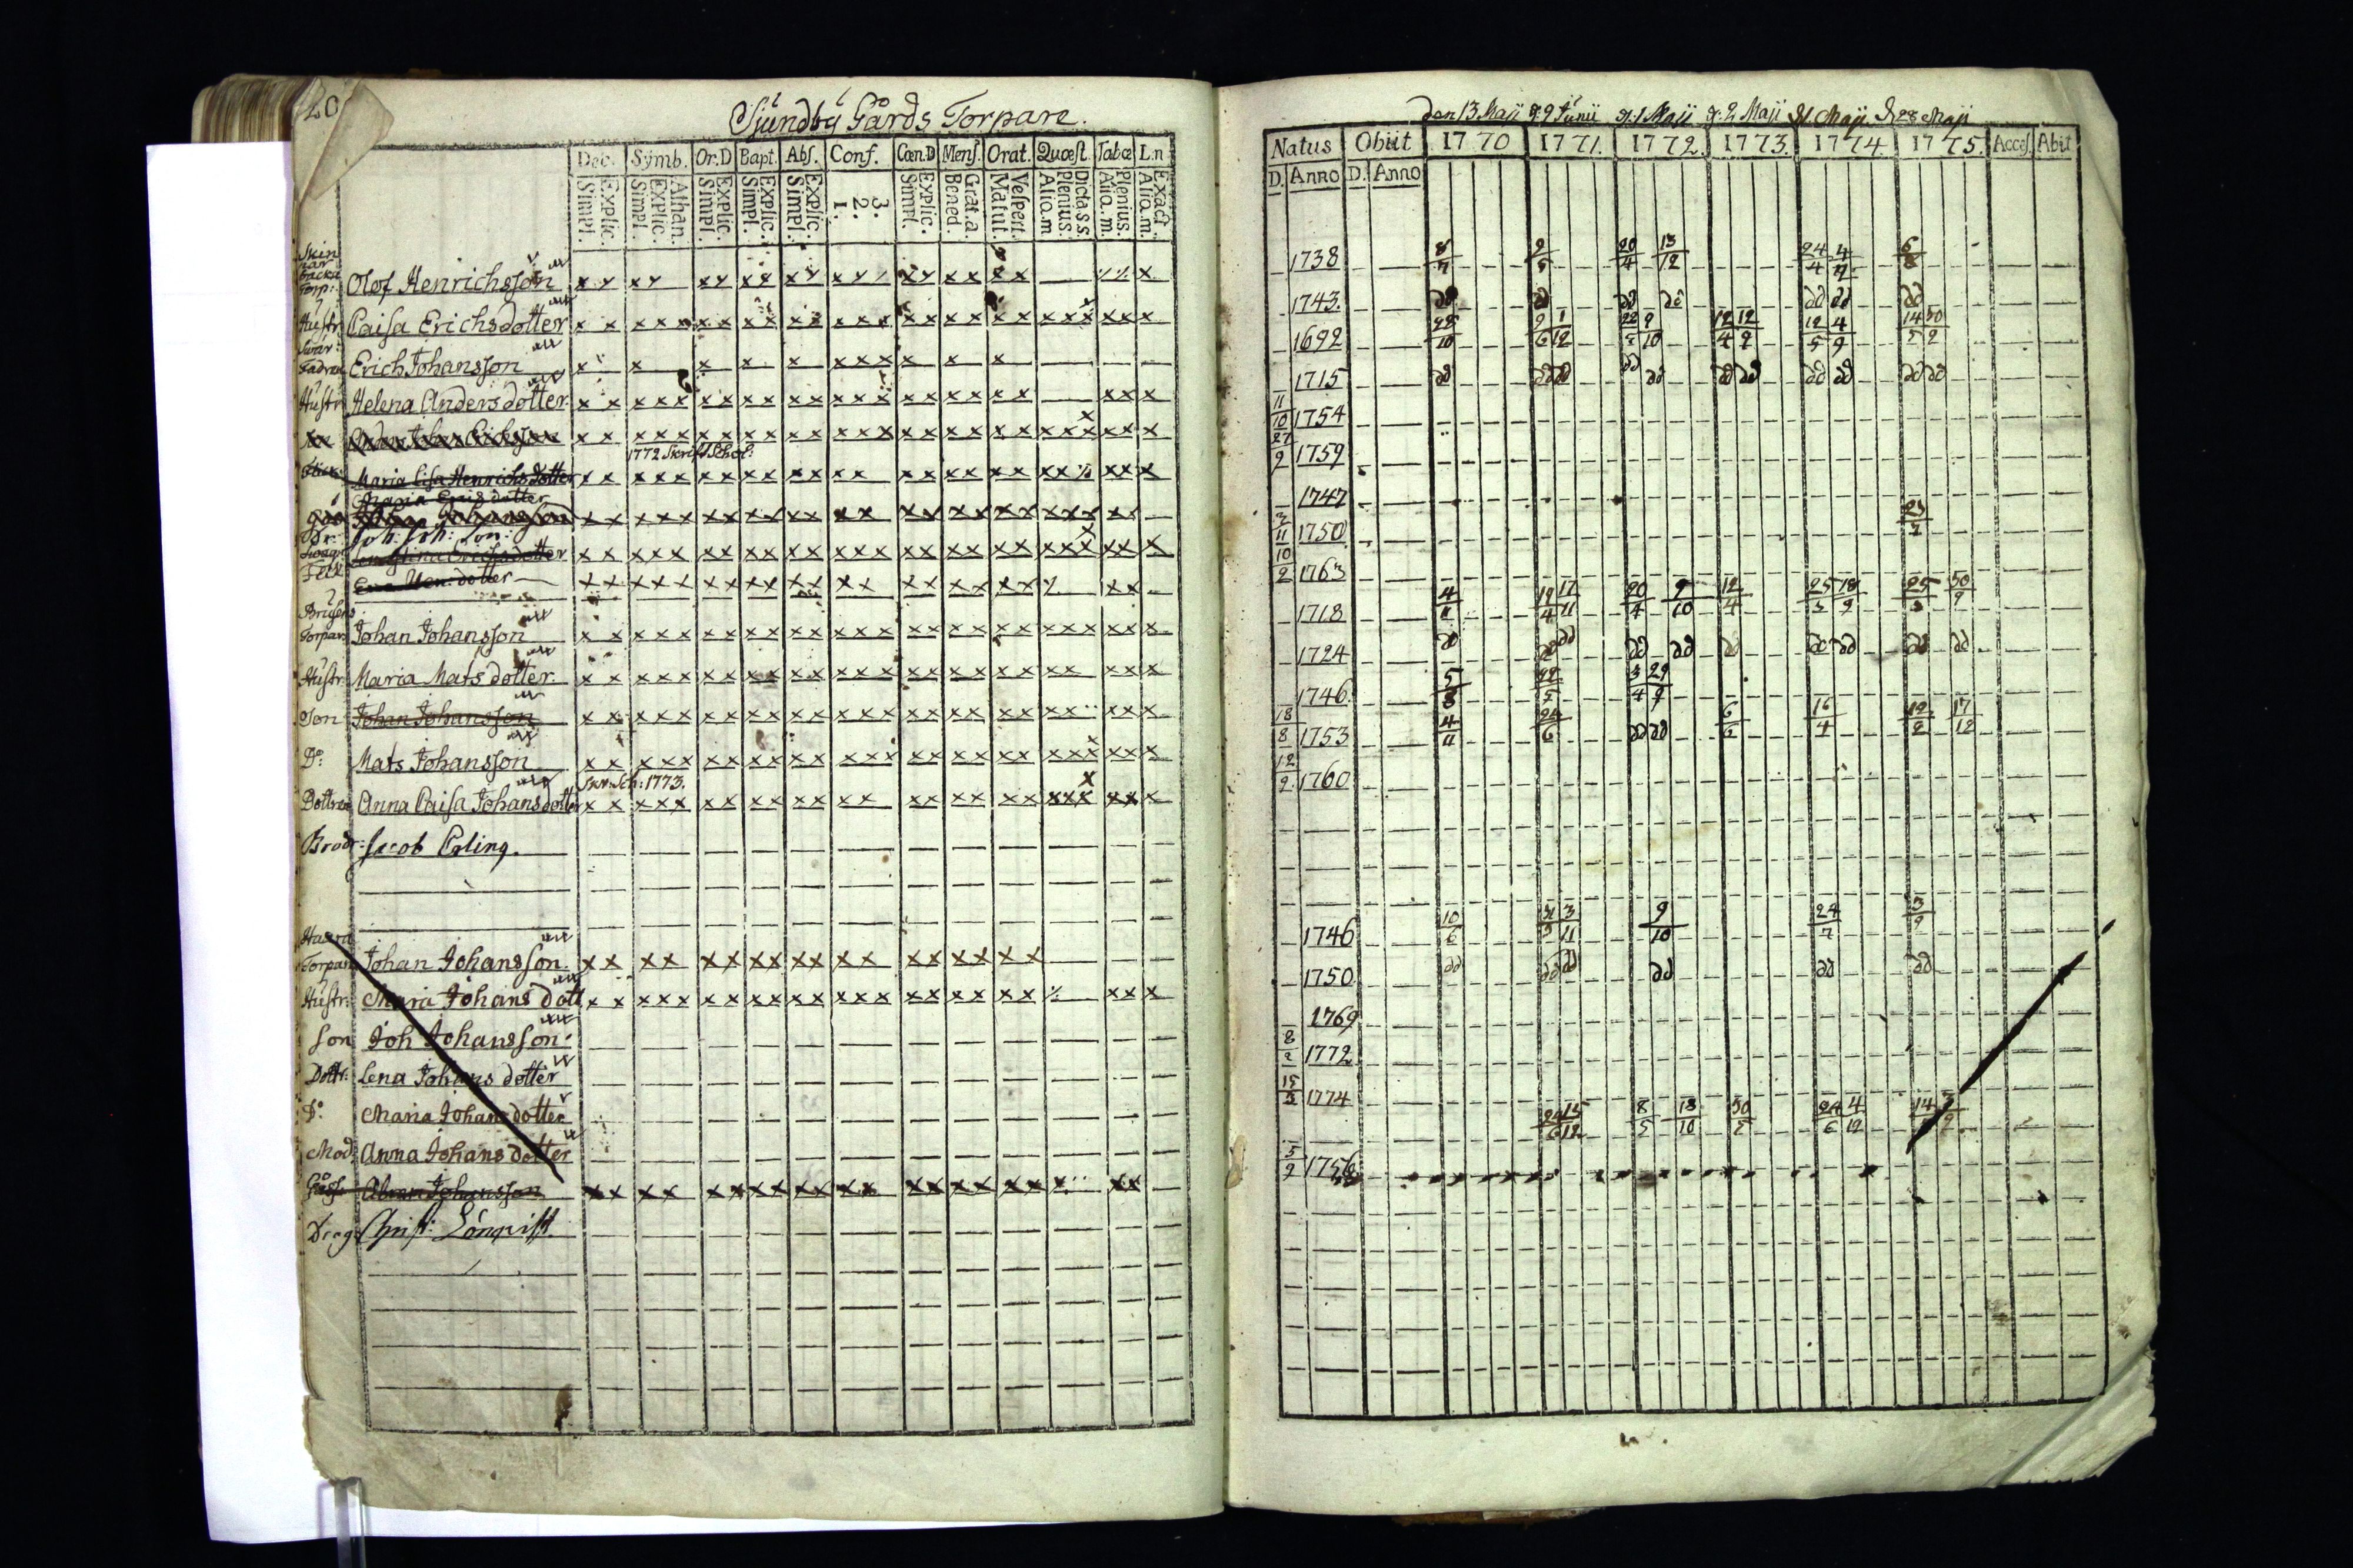 20
Sjundby Gårds Torpare.
Dec. Symb. Or.D Bapt. Abs. Conf. Cœn.D Mens. Orat. Quæst. Tabœ L.n
Explic. Simpl. Athan. Explic. Simpl. Explic. Simpl. Explic. Simpl. Explic. Simpl. 3. 2. 1. Explic. Simpl. Grat.a Bened. Vespert. Matut. Dicta s s. Plenius. Alio.m Plenius. Alio.m. Exact. Alio.m.
Torp: Olof Henrichsson
Hustr Caisa Erichsdotter
Swär: Fadren Erich Johansson
Hustr Helena Andersdotter
1772 Skrift Schol:
Maria Lisa Henrichsdotter
Maria Erisdotter
Joh: Joh: son:
Lena Stina Erichsdotter
Eva Hen: dotter
Torpar: Johan Johansson
Hustr: Maria Mats dotter.
Son Johan Johansson
Do: Mats Johansson
Skr: Sch: 1773.
Dottren Anna Caisa Johansdotter
Brodr: Jacob Erling.
Torpar Johan Johansson.
Hustr: Maria Johans dott
Son Joh Johansson
Dottr: Lena Johans dotter
Do: Maria Johansdotter
Mod: Anna Johans dotter
Johansson
Drag: Christ: Lönqvist.
Den 13 Maji d. 9 Junii d. 1 Maji d. 2 Maji d 1 Maji d 28 Maji
Natus Obiit 1770 1771. 1772. 1773. 1774. 1775. Acces. Abit
D. Anno D. Anno
1738 8/7 9/5 20/4 13/12 24/4 4/7 6/8
1743. dd dd dd dd dd dd dd
1692 22/10 9/6 1/12 22/5 9/10 12/4 12/9 12/5 4/9 14/5 30/9
1715 dd dd dd dd dd dd dd dd dd dd dd
11/10 1754
27/9 1759
1747
3/11 1750 23/7
10/2 1763
1718 4/11 12/4 17/11 20/4 9/10 12/4 25/5 18/9 25/5 30/9
1724 dd dd dd dd dd dd dd dd dd dd
1746. 5/8 22/5 3/4 29/9
18/8 1753 4/11 24/6 dd dd 6/6 16/4 12/2 17/12
12/9 1760
1746 10/6 31/3 3/11 9/10 24/7 3/9
1750. dd dd dd dd dd dd
1769
8/2 1772
15/3 1774
24/6 15/12 8/5 18/10 30/5 24/6 4/12
5/9 1756